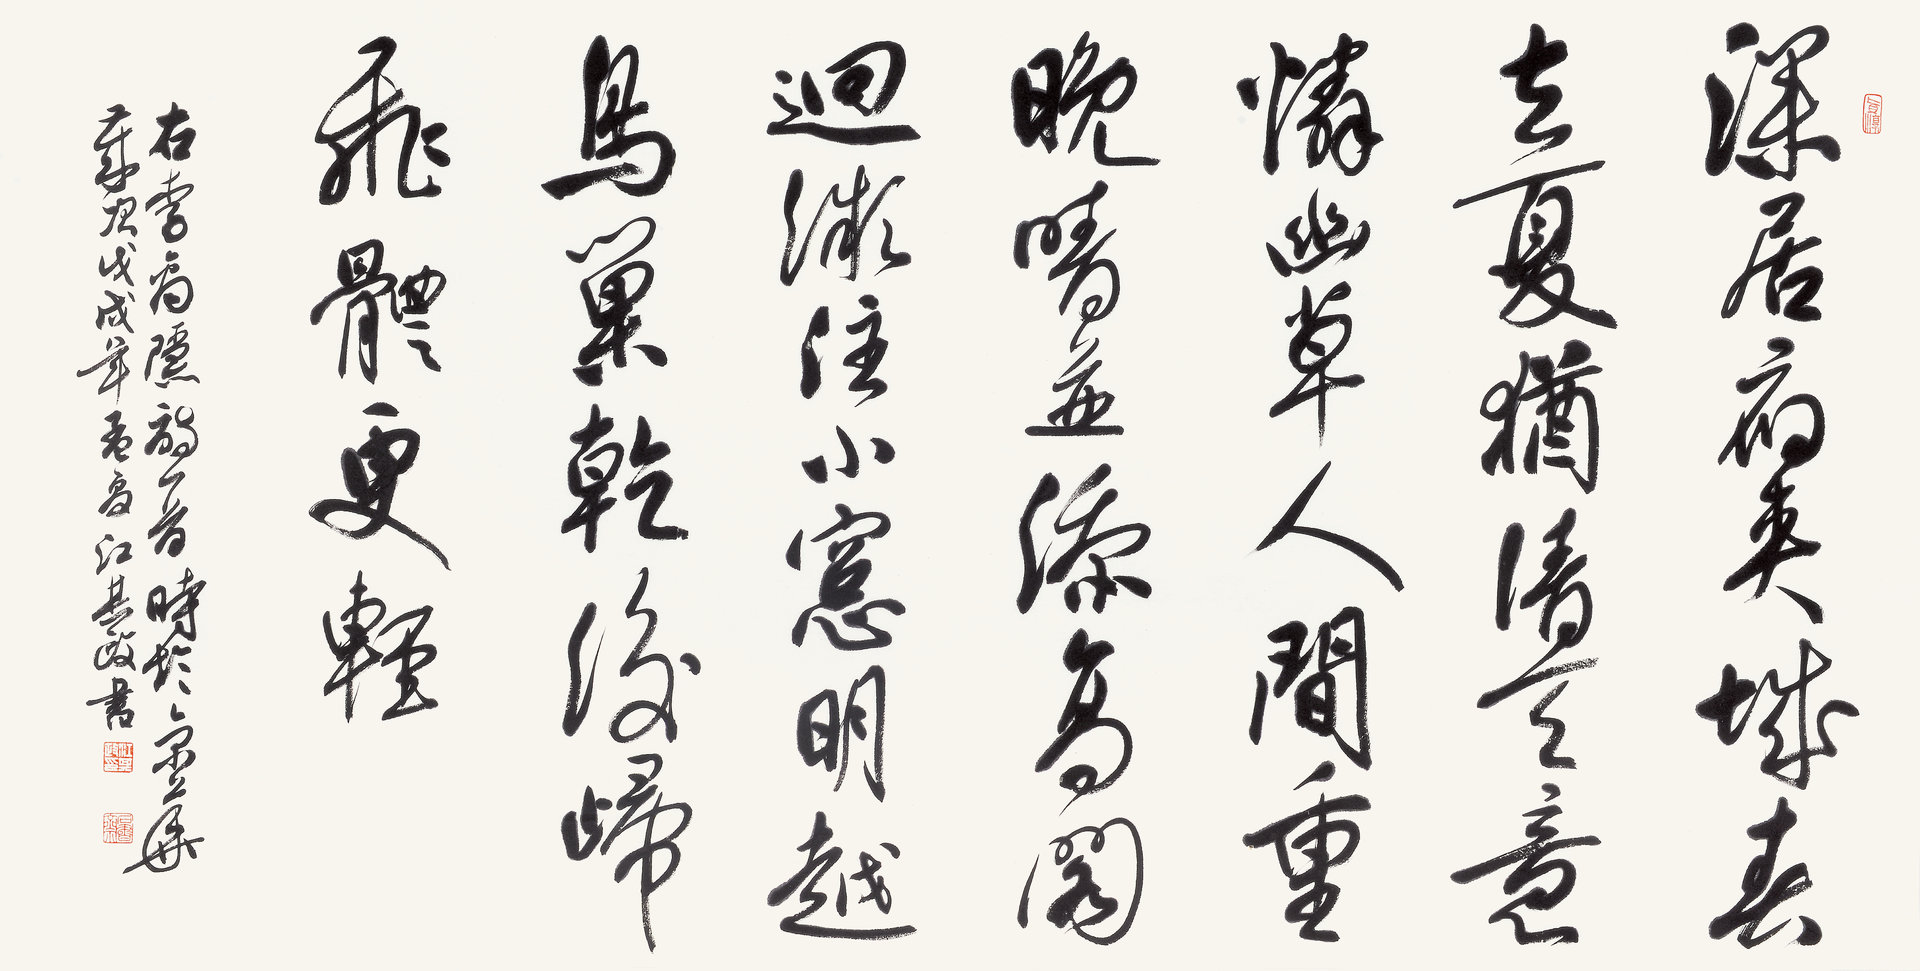 深居俯夾城春
去夏猶清天意
憐幽草人間重
晚晴並添高閣
迴微注小窓明越
鳥巢乾後歸
飛體更輕
右李商隱詩一首時於金華
歲次戊戌年孟夏江其政書